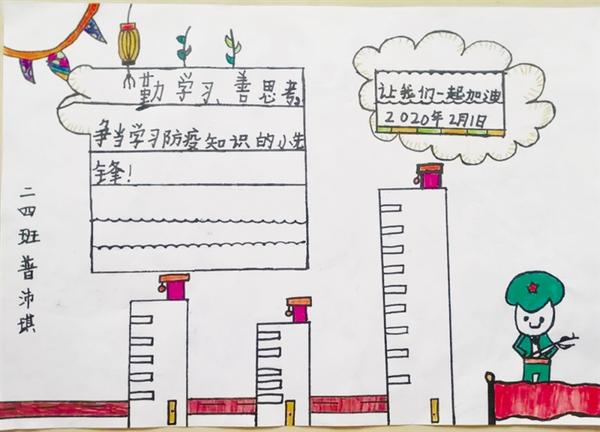 勤学习、善思考,
争当学习防疫知识的小先
锋！
让我们一起加油
2020年2月1日
二四班普沛琪